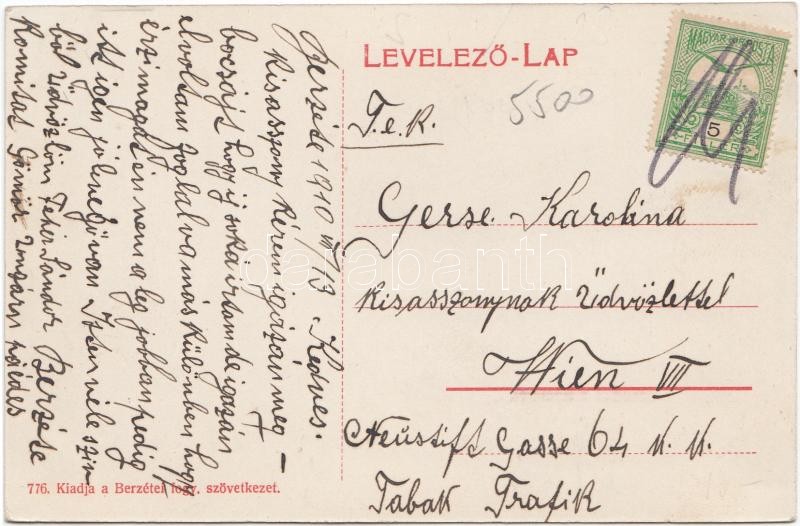 LEVELEZŐ-LAP
MAGYAR POSTA
5
FILLER
5500
T.e.K.
Gerse. Karolina
Kisasszonynak Üdvözlettel
Wien VII
Neüstift Gasse 64 K. K.
Tabak Trafik
Berzéte 1910 13. Kedves.
Kisasszony kérem igazán meg-
bocsájt hogy ij soká irtam de igazán
el voltam foglalva más különben hogy
érzi magát én nem a leg jobban pedig
itt igen jó levegö van Isten vele szív
böl üdvözlöm Fehér Sándor Berzéte
Komitat Gömör Ungarn
776. Kiadja a Berzétei fogy. szövetkezet.
darabanth